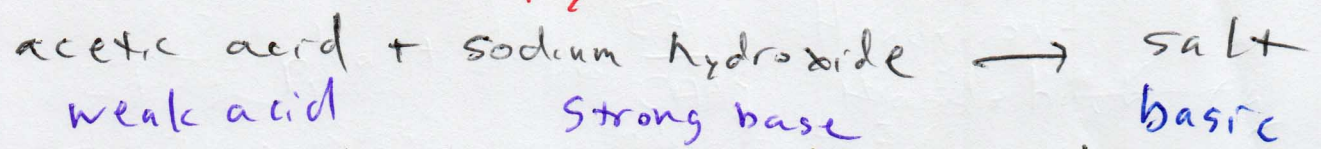 acetic acid + sodium hydroxide → salt
weak acid strong base basic